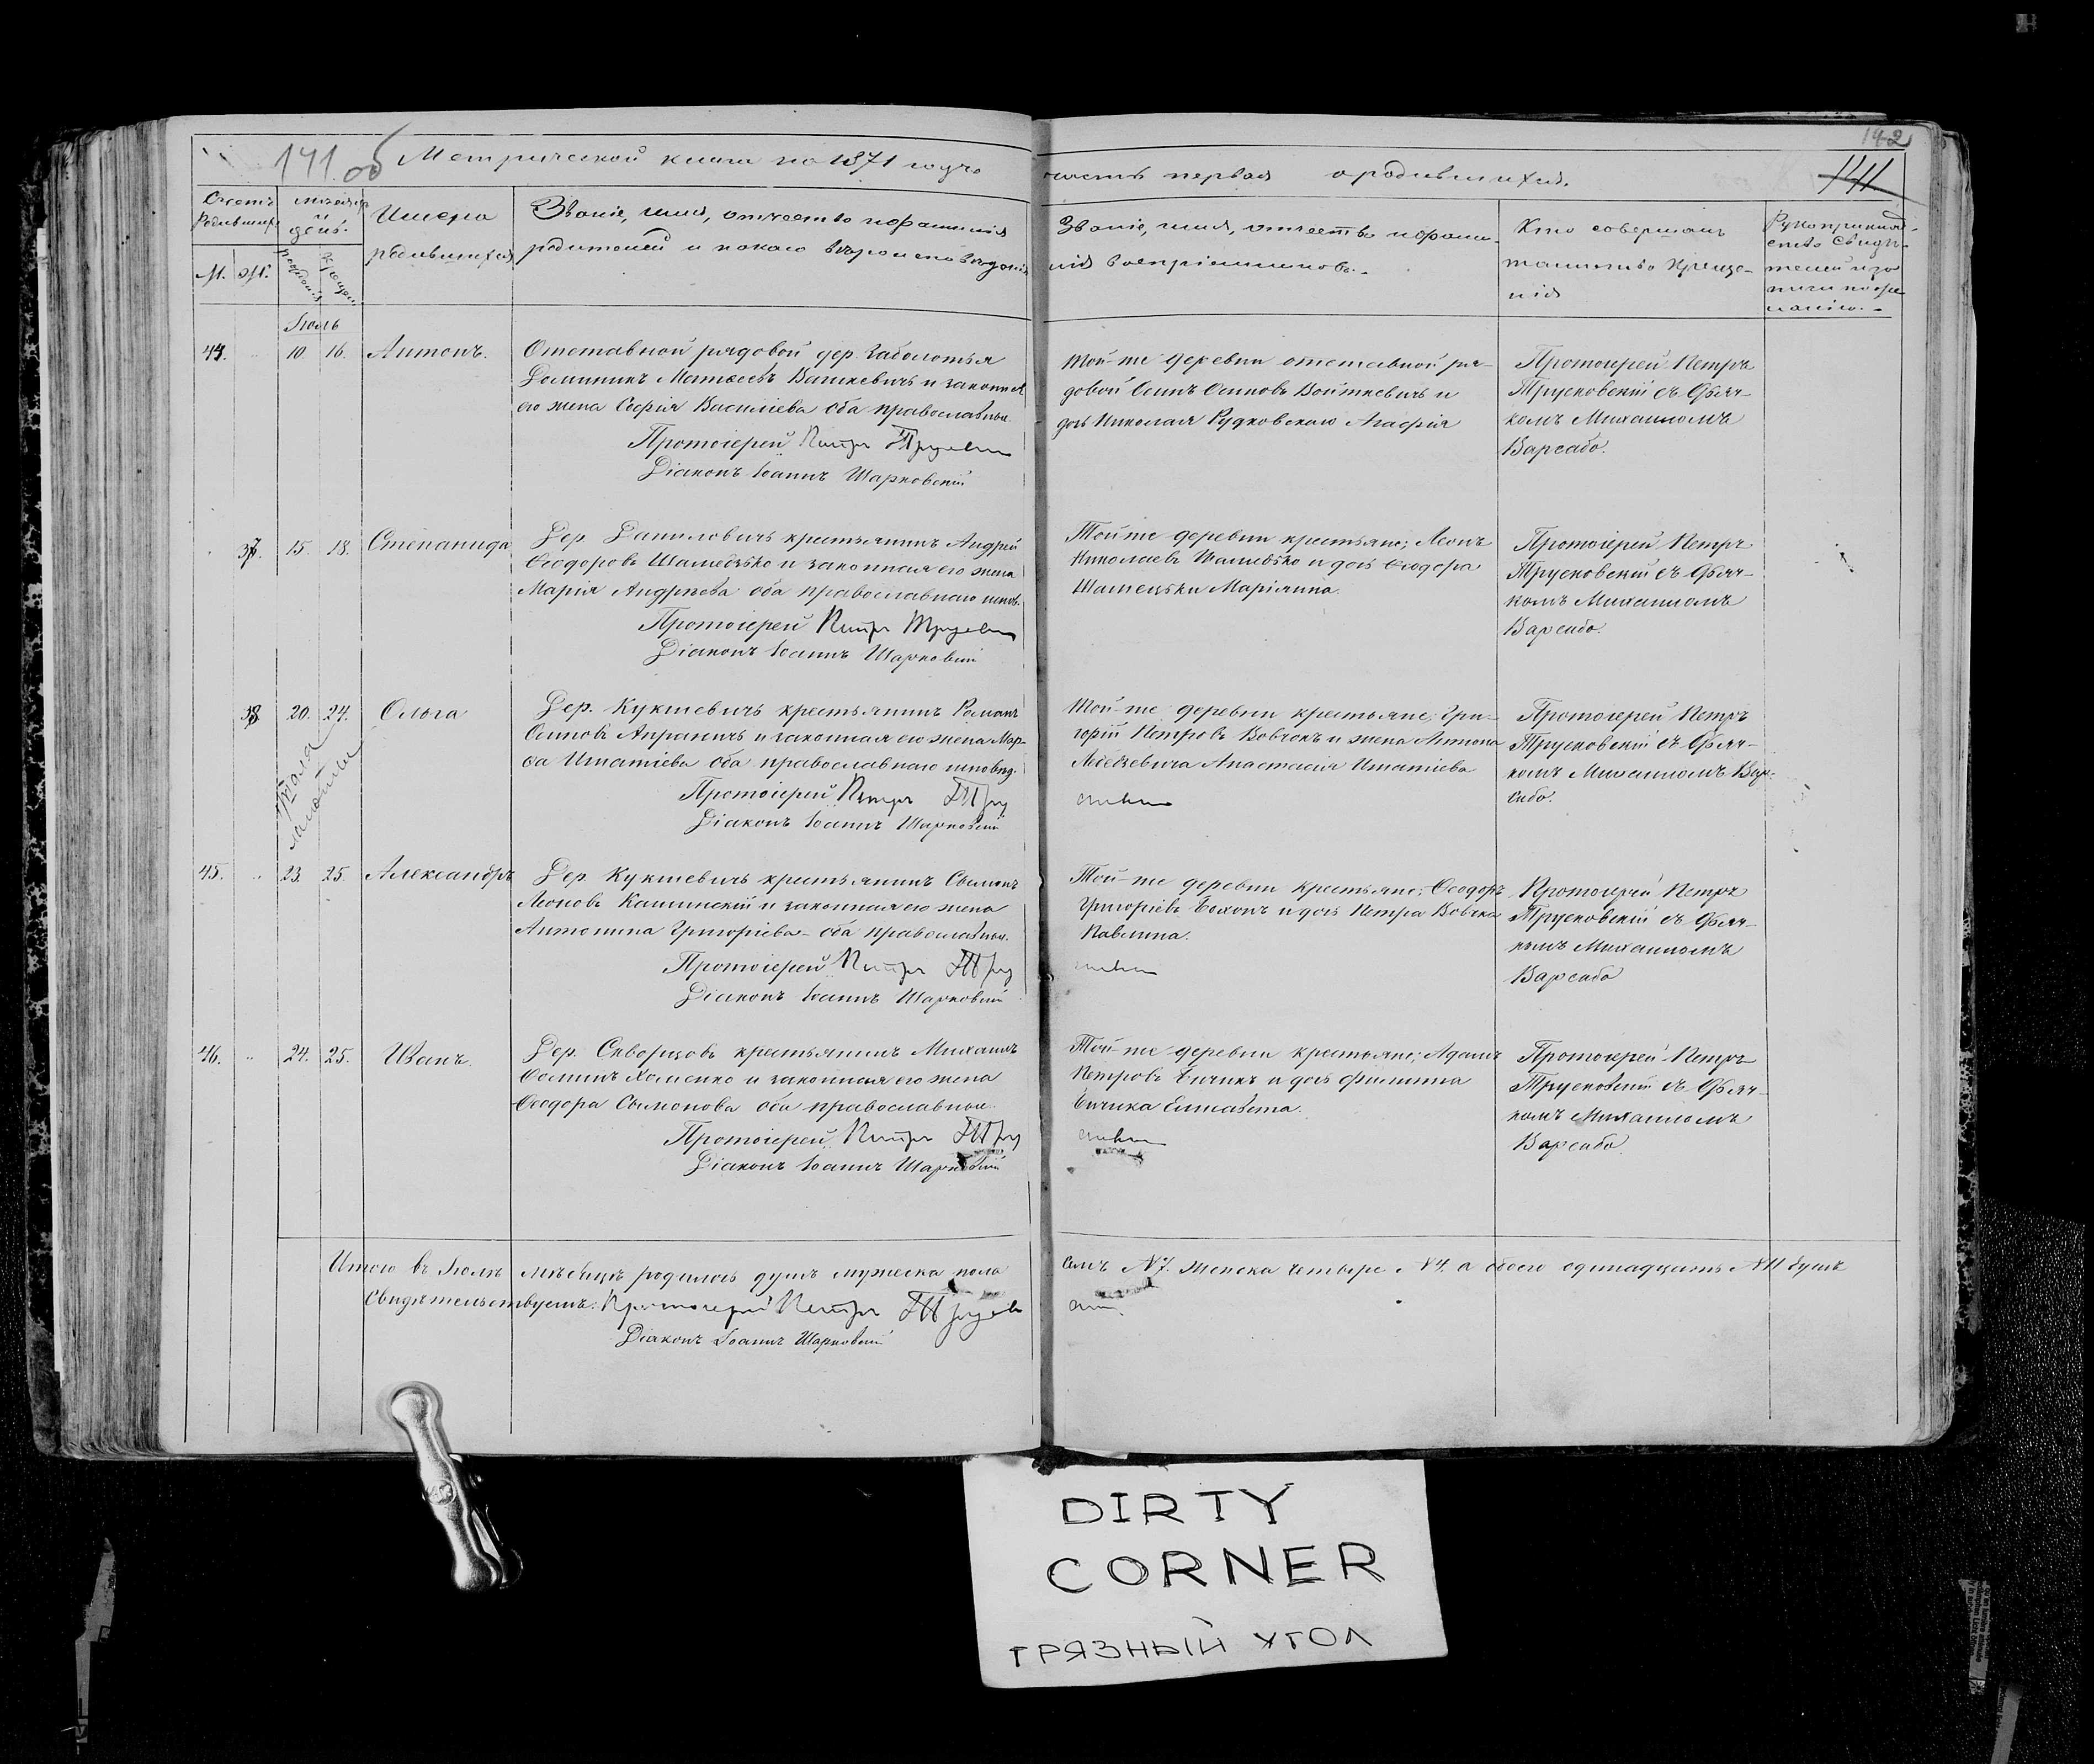 142
141
141 об
Метрической книги на 1871 годъ
часть первая о родившихся.
Счетъ родившихся
М. Ж.
Мѣсяцъ и день.
рожденія
крещенія
Имена
родившихся
Званіе, имя, отчество и фамилія
родителей и какого вѣроисповѣданія
Званіе, имя, отчество и фами-
лія воспріемниковъ.
Кто совершалъ
таинство креще-
нія
Рукоприклад-
ство свидѣ-
телей
Іюль
44. 10. 16. Антонъ.
Отставной рядовой дер. Заболотья
Доминикъ Матѳеевъ Вашкевичъ и законная
его жена Софія Васильева оба православные.
Протоіерей Петръ
Діаконъ Іоаннъ Шарковскій
Той-же деревни отставной ря-
довой Осипъ Осиповъ Войткевичъ и
дочь Николая Рудковскаго Агафія
Протоіерей Петръ
Трусковскій съ дьяч-
комъ Михаиломъ
Варсабо.
37. 15. 18. Степанида
Дер. Даниловичъ крестьянинъ Андрей
Ѳеодоровъ и законная его жена
Марія Андреева оба православнаго исповѣд.
Протоіерей Петръ
Діаконъ Іоаннъ Шарковскій
Той-же деревни крестьяне; Леонъ
Николаевъ и дочь Ѳеодора
Маріанна.
Протоіерей Петръ
Трусковскій съ дьяч-
комъ Михаиломъ
Варсабо.
38 20. 24. Ольга
Дер. Кукшевичъ крестьянинъ Романъ
Осиповъ и законная его жена Мар-
ѳа Игнатіева оба православнаго исповѣд.
Протоіерей Петръ
Діаконъ Іоаннъ Шарковскій
Той-же деревни крестьяне; Гри-
горій Петровъ Вовчокъ и жена Антона
Лебедзевича Анастасія Игнатіева
Протоіерей Петръ
Трусковскій съ дьяч-
комъ Михаиломъ Вар-
сабо.
45. 23. 25. Александръ
Дер. Кукшевичъ крестьянинъ Сымонъ
Леоновъ Калинскій и законная его жена
Антонина Григоріева оба православные.
Протоіерей Петръ
Діаконъ Іоаннъ Шарковскій
Той-же деревни крестьяне; Ѳеодоръ
Григоріевъ и дочь Петра Вовчка
Павлина.
Протоіерей Петръ
Трусковскій съ дьяч-
комъ Михаиломъ
Варсабо
46. 24. 25. Иванъ.
Дер. Скворцовъ крестьянинъ Михаилъ
и законная его жена
Ѳеодора Сымонова оба православные.
Протоіерей Петръ
Діаконъ Іоаннъ Шарковскій
Той-же деревни крестьяне; Адамъ
Петровъ Бичикъ и дочь Филиппа
Бичика Елисавета.
Протоіерей Петръ
Трусковскій съ дьяч-
комъ Михаиломъ
Варсабо.
Итого въ Іюлѣ мѣсяцѣ родилось душъ мужеска пола
семъ №7. женска четыре №4, а обоего одинадцать №11 душъ
Свидѣтельствуемъ: Протоіерей Петръ
Діаконъ Іоаннъ Шарковскій
DIRTY
CORNER
ГРЯЗНЫЙ УГОЛ